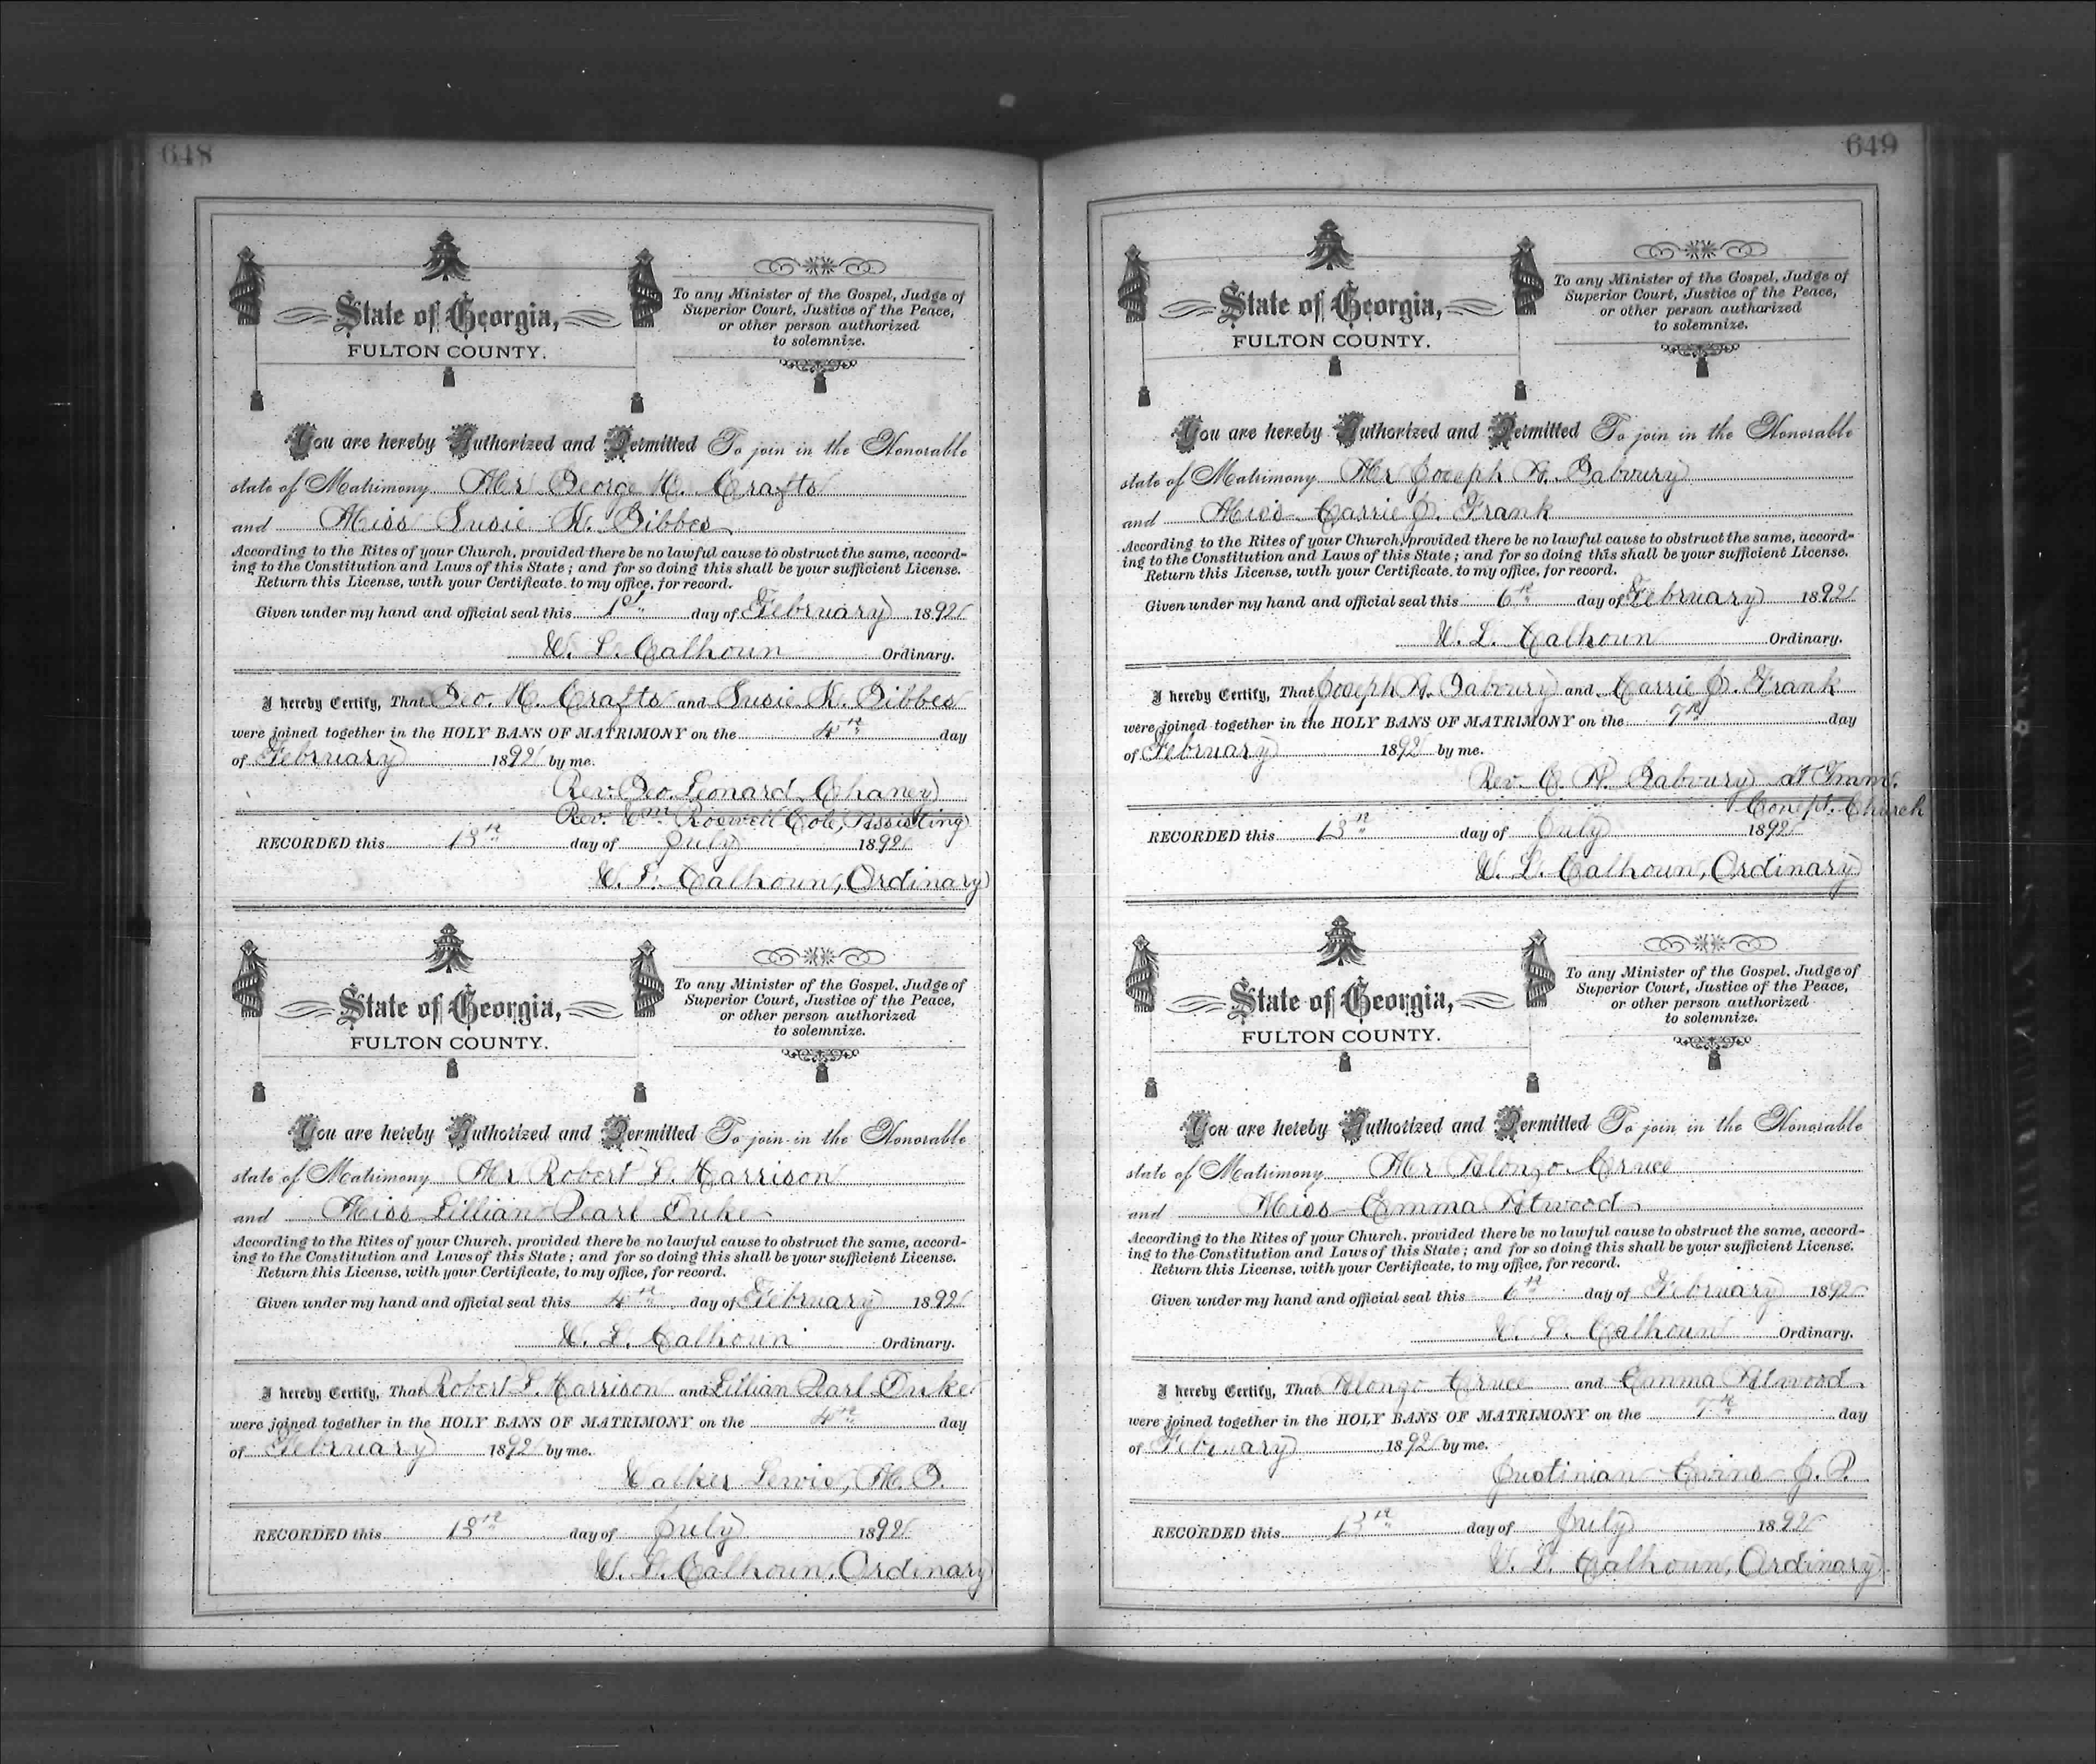 648
State of Georgia,
FULTON COUNTY.
To any Minister of the Gospel, Judge of
Superior Court, Justice of the Peace,
or other person authorized
to solemnize.
You are hereby Authorized and Permitted To join in the Honorable
state of Matrimony Mr George H. Crafts
and Miss Susie K. Gibbes
According to the Rites of your Church, provided there be no lawful cause to obstruct the same, accord-
ing to the Constitution and Laws of this State; and for so doing this shall be your sufficient License.
Return this License, with your Certificate, to my office, for record.
Given under my hand and official seal this 1st day of February 1892
W. L. Calhoun Ordinary.
I hereby Certify, That Geo. H. Crafts and Susie K. Gibbes
were joined together in the HOLY BANS OF MATRIMONY on the 4th day
of February 1892 by me.
Rev. Geo. Leonard Chaney
Rev. Wm Roswell Cole, Assisting
RECORDED this 13th day of July 1892
W. L. Calhoun, Ordinary
State of Georgia,
FULTON COUNTY.
To any Minister of the Gospel, Judge of
Superior Court, Justice of the Peace,
or other person authorized
to solemnize.
You are hereby Authorized and Permitted To join in the Honorable
state of Matrimony Mr Robert L. Harrison
and Miss Lillian Pearl Duke
According to the Rites of your Church, provided there be no lawful cause to obstruct the same, accord-
ing to the Constitution and Laws of this State; and for so doing this shall be your sufficient License.
Return this License, with your Certificate, to my office, for record.
Given under my hand and official seal this 4th day of February 1892
W. L. Calhoun Ordinary.
I hereby Certify, That Robert L. Harrison and Lillian Pearl Duke
were joined together in the HOLY BANS OF MATRIMONY on the 4th day
of February 1892 by me.
Walker Lewis, M. G.
RECORDED this 13th day of July 1892
W. L. Calhoun, Ordinary
649
State of Georgia,
FULTON COUNTY.
To any Minister of the Gospel, Judge of
Superior Court, Justice of the Peace,
or other person authorized
to solemnize.
You are hereby Authorized and Permitted To join in the Honorable
state of Matrimony Mr Joseph A. Gaboury
and Miss Carrie J. Frank
According to the Rites of your Church, provided there be no lawful cause to obstruct the same, accord-
ing to the Constitution and Laws of this State; and for so doing this shall be your sufficient License.
Return this License, with your Certificate, to my office, for record.
Given under my hand and official seal this 6th day of February 1892
W. L. Calhoun Ordinary.
I hereby Certify, That Joseph A. Gaboury and Carrie J. Frank
were joined together in the HOLY BANS OF MATRIMONY on the 7th day
of February 1892 by me.
Rev. C. A. Gaboury at Imm.
Concept. Church
RECORDED this 13th day of July 1892
W. L. Calhoun, Ordinary
State of Georgia,
FULTON COUNTY.
To any Minister of the Gospel, Judge of
Superior Court, Justice of the Peace,
or other person authorized
to solemnize.
You are hereby Authorized and Permitted To join in the Honorable
state of Matrimony Mr Alonzo Cruce
and Miss Emma Atwood
According to the Rites of your Church, provided there be no lawful cause to obstruct the same, accord-
ing to the Constitution and Laws of this State; and for so doing this shall be your sufficient License.
Return this License, with your Certificate, to my office, for record.
Given under my hand and official seal this 6th day of February 1892
W. L. Calhoun Ordinary.
I hereby Certify, That Alonzo Cruce and Emma Atwood
were joined together in the HOLY BANS OF MATRIMONY on the 7th day
of February 1892 by me.
Justinian Evins J. P.
RECORDED this 13th day of July 1892
W. L. Calhoun, Ordinary